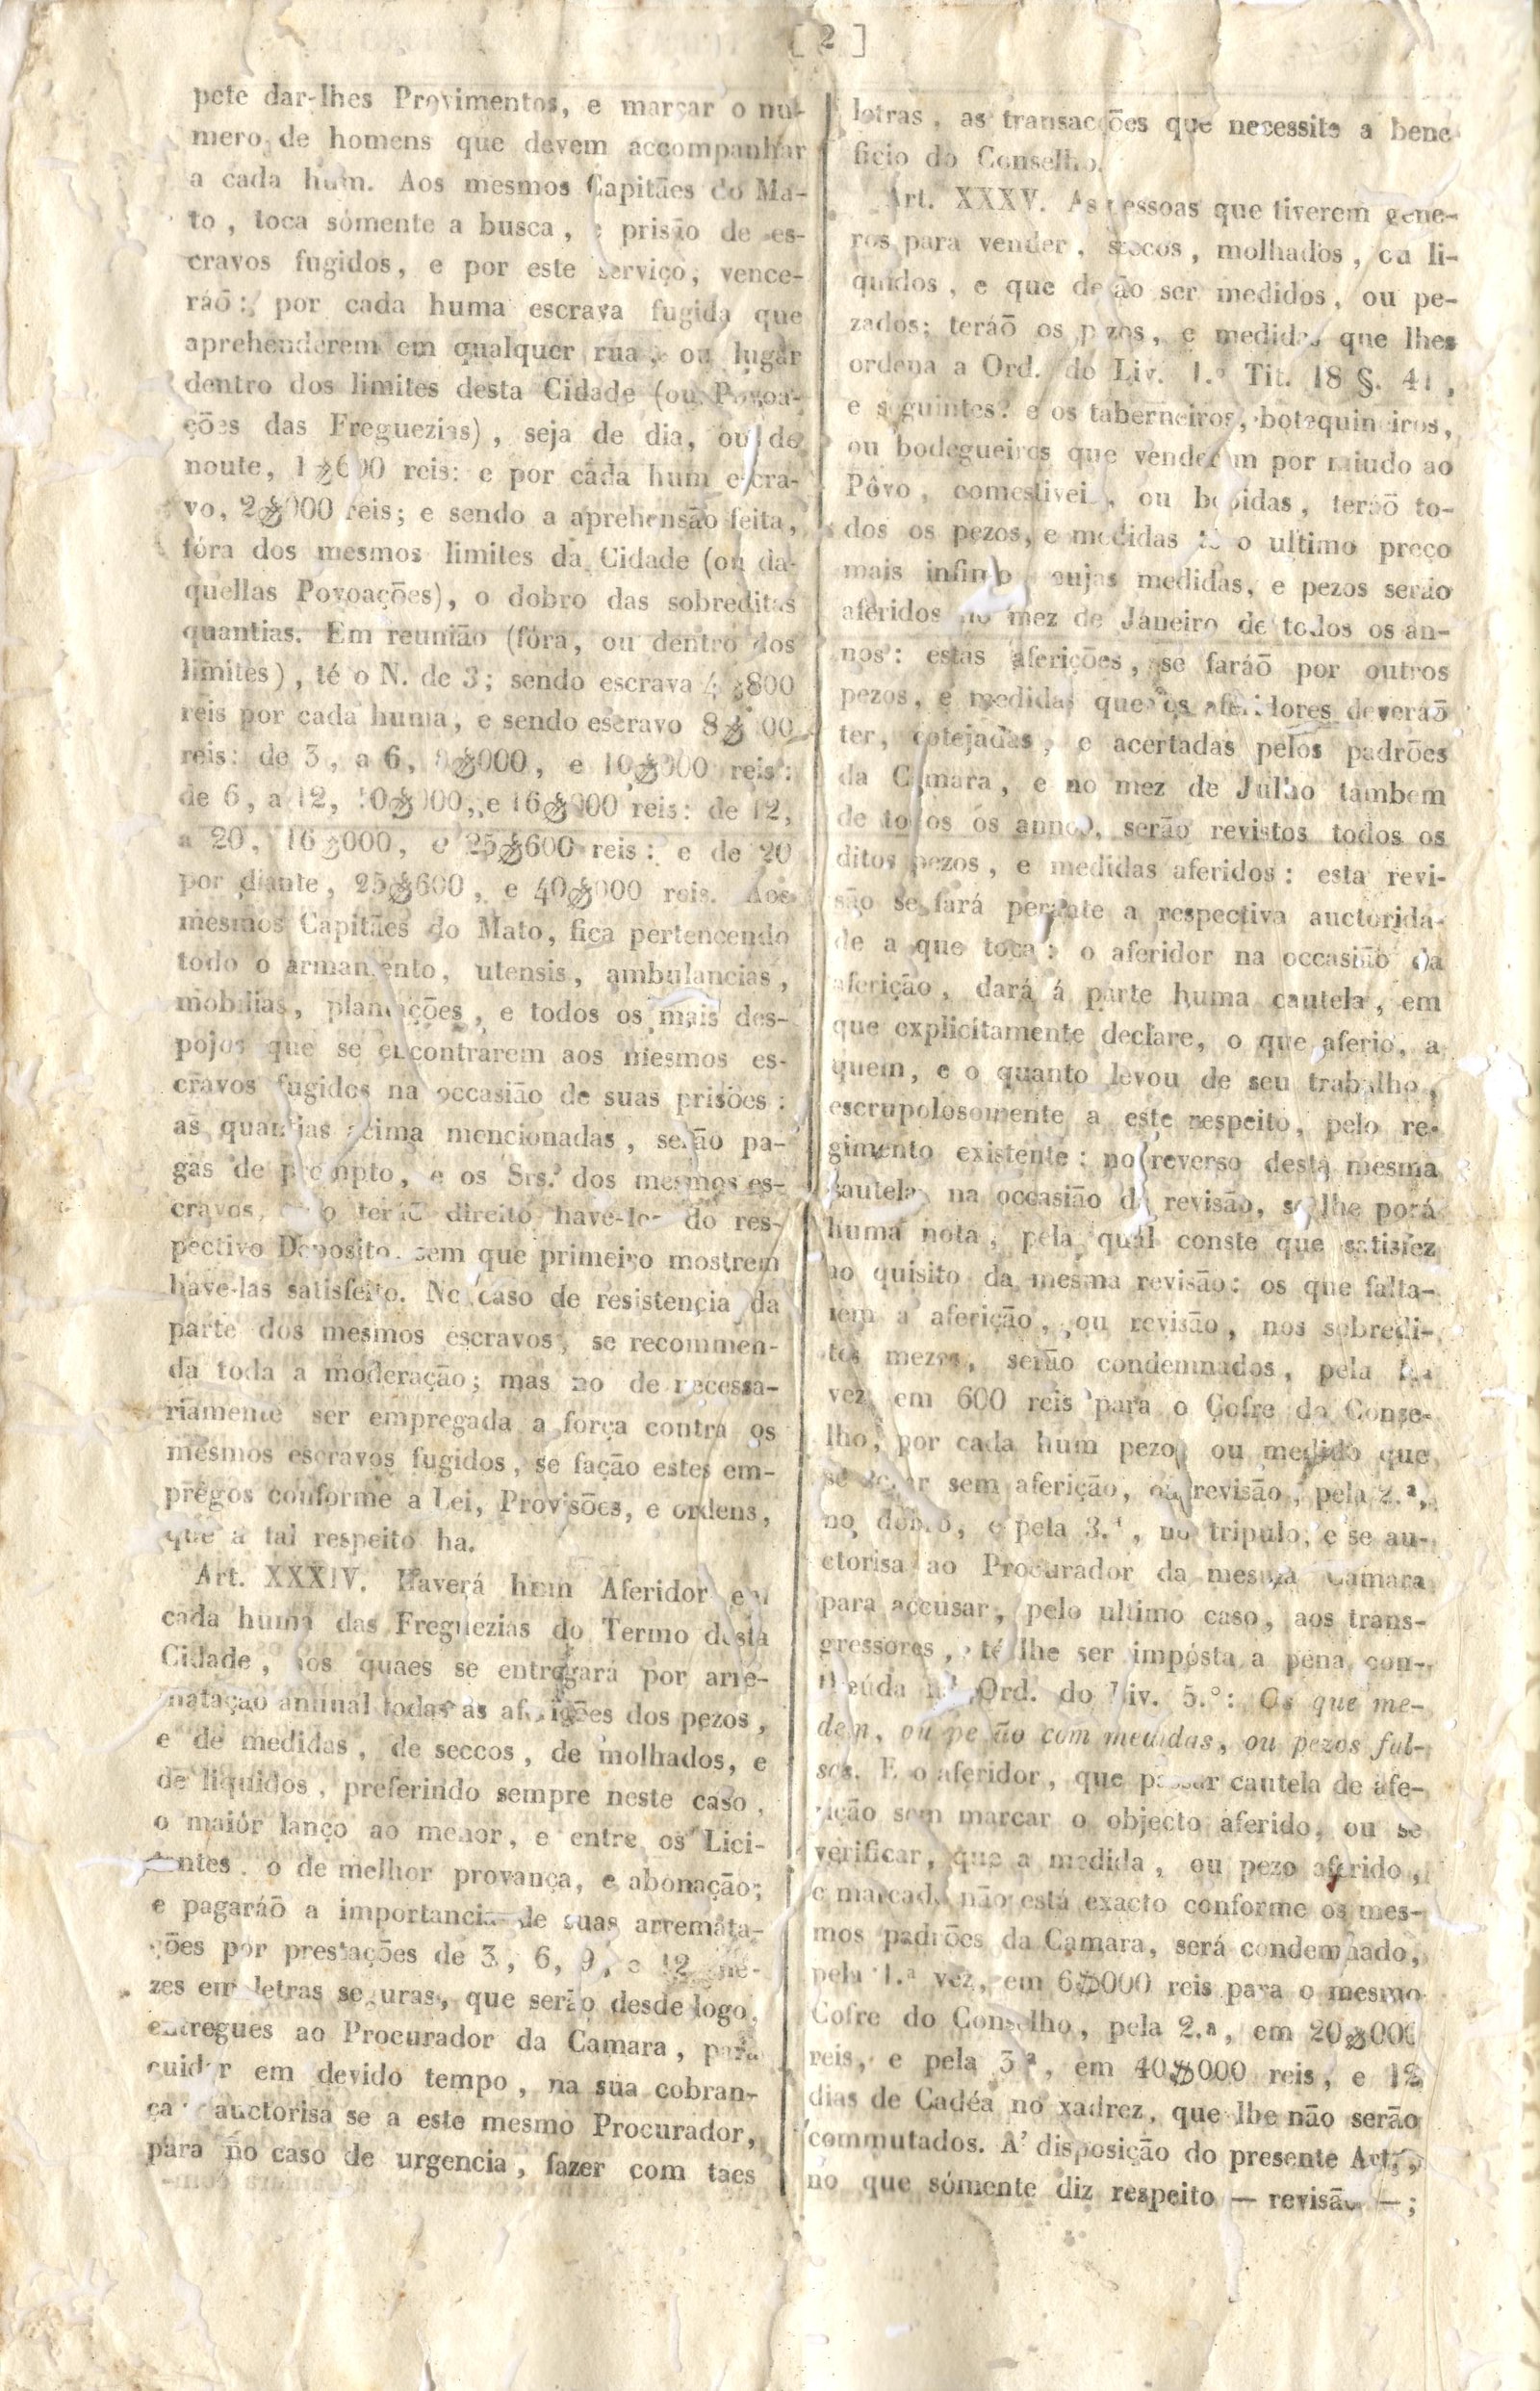 [ 2 ]
pete dar-lhes Provimentos, e marçar o nu-
mero de homens que devem accompanhar
a cada hum. Aos mesmos Capitães do Ma-
to, toca sómente a busca, e prisão de es-
cravos fugidos, e por este serviço, vence-
ráõ: por cada huma escrava fugida que
aprehenderem em qualquer rua, ou lugar
dentro dos limites desta Cidade (ou Povoa-
ções das Freguezias), seja de dia, ou de
noute, 1$600 reis: e por cada hum escra-
vo, 2$000 reis; e sendo a aprehensão feita,
fóra dos mesmos limites da Cidade (ou da-
quellas Povoações), o dobro das sobreditas
quantias. Em reunião (fóra, ou dentro dos
limites), té o N. de 3; sendo escrava 4$800
reis por cada huma, e sendo escravo
reis: de 3, a 6, $000, e 10$000 reis:
de 6, a 12, 10$000, e 16$000 reis: de 12,
a 20, 16$000, e 25$600 reis: e de 20
por diante, 25$600, e 40$000 reis. Aos
mesmos Capitães do Mato, fica pertencendo
todo o armamento, utensis, ambulancias,
mobilias, plantações, e todos os mais des-
pojos que se encontrarem aos mesmos es-
cravos fugidos na occasião de suas prisões:
as quantias acima mencionadas, serão pa-
gas de prompto, e os Srs. dos mesmos es-
cravos, não teráõ direito have-los do res-
pectivo Deposito, sem que primeiro mostrem
have-las satisfeito. No caso de resistencia da
parte dos mesmos escravos, se recommen-
da toda a moderação; mas no de necessa-
riamente ser empregada a força contra os
mesmos escravos fugidos, se fação estes em-
pregos conforme a Lei, Provisões, e ordens,
que a tal respeito ha.
Art. XXXIV. Haverá hum Aferidor em
cada huma das Freguezias do Termo desta
Cidade, aos quaes se entregará por arre-
matação annual todas as aferições dos pezos,
e de medidas, de seccos, de molhados, e
de liquidos, preferindo sempre neste caso,
o maiór lanço ao menor, e entre os Lici-
tantes, o de melhor provança, e abonação;
e pagaráõ a importancia de suas arremata-
ções por prestações de 3, 6, 9, e 12 me-
zes em letras seguras, que serão desde logo,
entregues ao Procurador da Camara, para
cuidar em devido tempo, na sua cobran-
ça: auctorisa se a este mesmo Procurador,
para no caso de urgencia, fazer com taes
letras, as transacções que necessite a bene
ficio do Conselho.
Art. XXXV. As pessoas que tiverem gene-
ros para vender, seccos, molhados, ou li-
quidos, e que devão ser medidos, ou pe-
zados; teráõ os pezos, e medidas que lhes
ordena a Ord. do Liv. 1.º Tit. 18 §. 41,
e seguintes: e os taberneiros, botequineiros,
ou bodegueiros que venderem por miudo ao
Pôvo, comestiveis, ou bebidas, teráõ to-
dos os pezos, e medidas té o ultimo preço
mais infimo, cujas medidas, e pezos serão
aferidos no mez de Janeiro de todos os an-
nos: estas aferições, se faráõ por outros
pezos, e medidas que os aferidores deveráõ
ter, cotejadas, e acertadas pelos padrões
da Camara, e no mez de Julho tambem
de todos os annos, serão revistos todos os
ditos pezos, e medidas aferidos: esta revi-
são se fará perante a respectiva auctorida-
de a que toca: o aferidor na occasião da
aferição, dará á parte huma cautela, em
que explicitamente declare, o que aferio, a
quem, e o quanto levou de seu trabalho,
escrupolosomente a este respeito, pelo re-
gimento existente: no reverso desta mesma
cautela, na occasião da revisão, se lhe porá
huma nota, pela qual conste que satisfez
ao quisito da mesma revisão: os que falta-
rem a aferição, ou revisão, nos sobredi-
tos mezes, serão condemnados, pela 1.ª
vez, em 600 reis para o Cofre do Conse-
lho, por cada hum pezo, ou medido que
se achar sem aferição, ou revisão, pela 2.ª,
no dobro, e pela 3.ª, no tripulo, e se au-
ctorisa ao Procurador da mesma Camara
para accusar, pelo ultimo caso, aos trans-
gressores, té lhe ser impósta a pena con-
theúda na Ord. do Liv. 5.º: Os que me-
dem, ou pezão com medidas, ou pezos fal-
sos. E o aferidor, que passar cautela de afe-
rição sem marcar o objecto aferido, ou se
verificar, que a medida, ou pezo aferido,
e marcado não está exacto conforme os mes-
mos padrões da Camara, será condemnado,
pela 1.ª vez, em 6$000 reis para o mesmo
Cofre do Conselho, pela 2.ª, em 20$000
reis, e pela 3.ª, em 40$000 reis, e 12
dias de Cadéa no xadrez, que lhe não serão
commutados. A' disposição do presente Art.,
no que sómente diz respeito — revisão —;